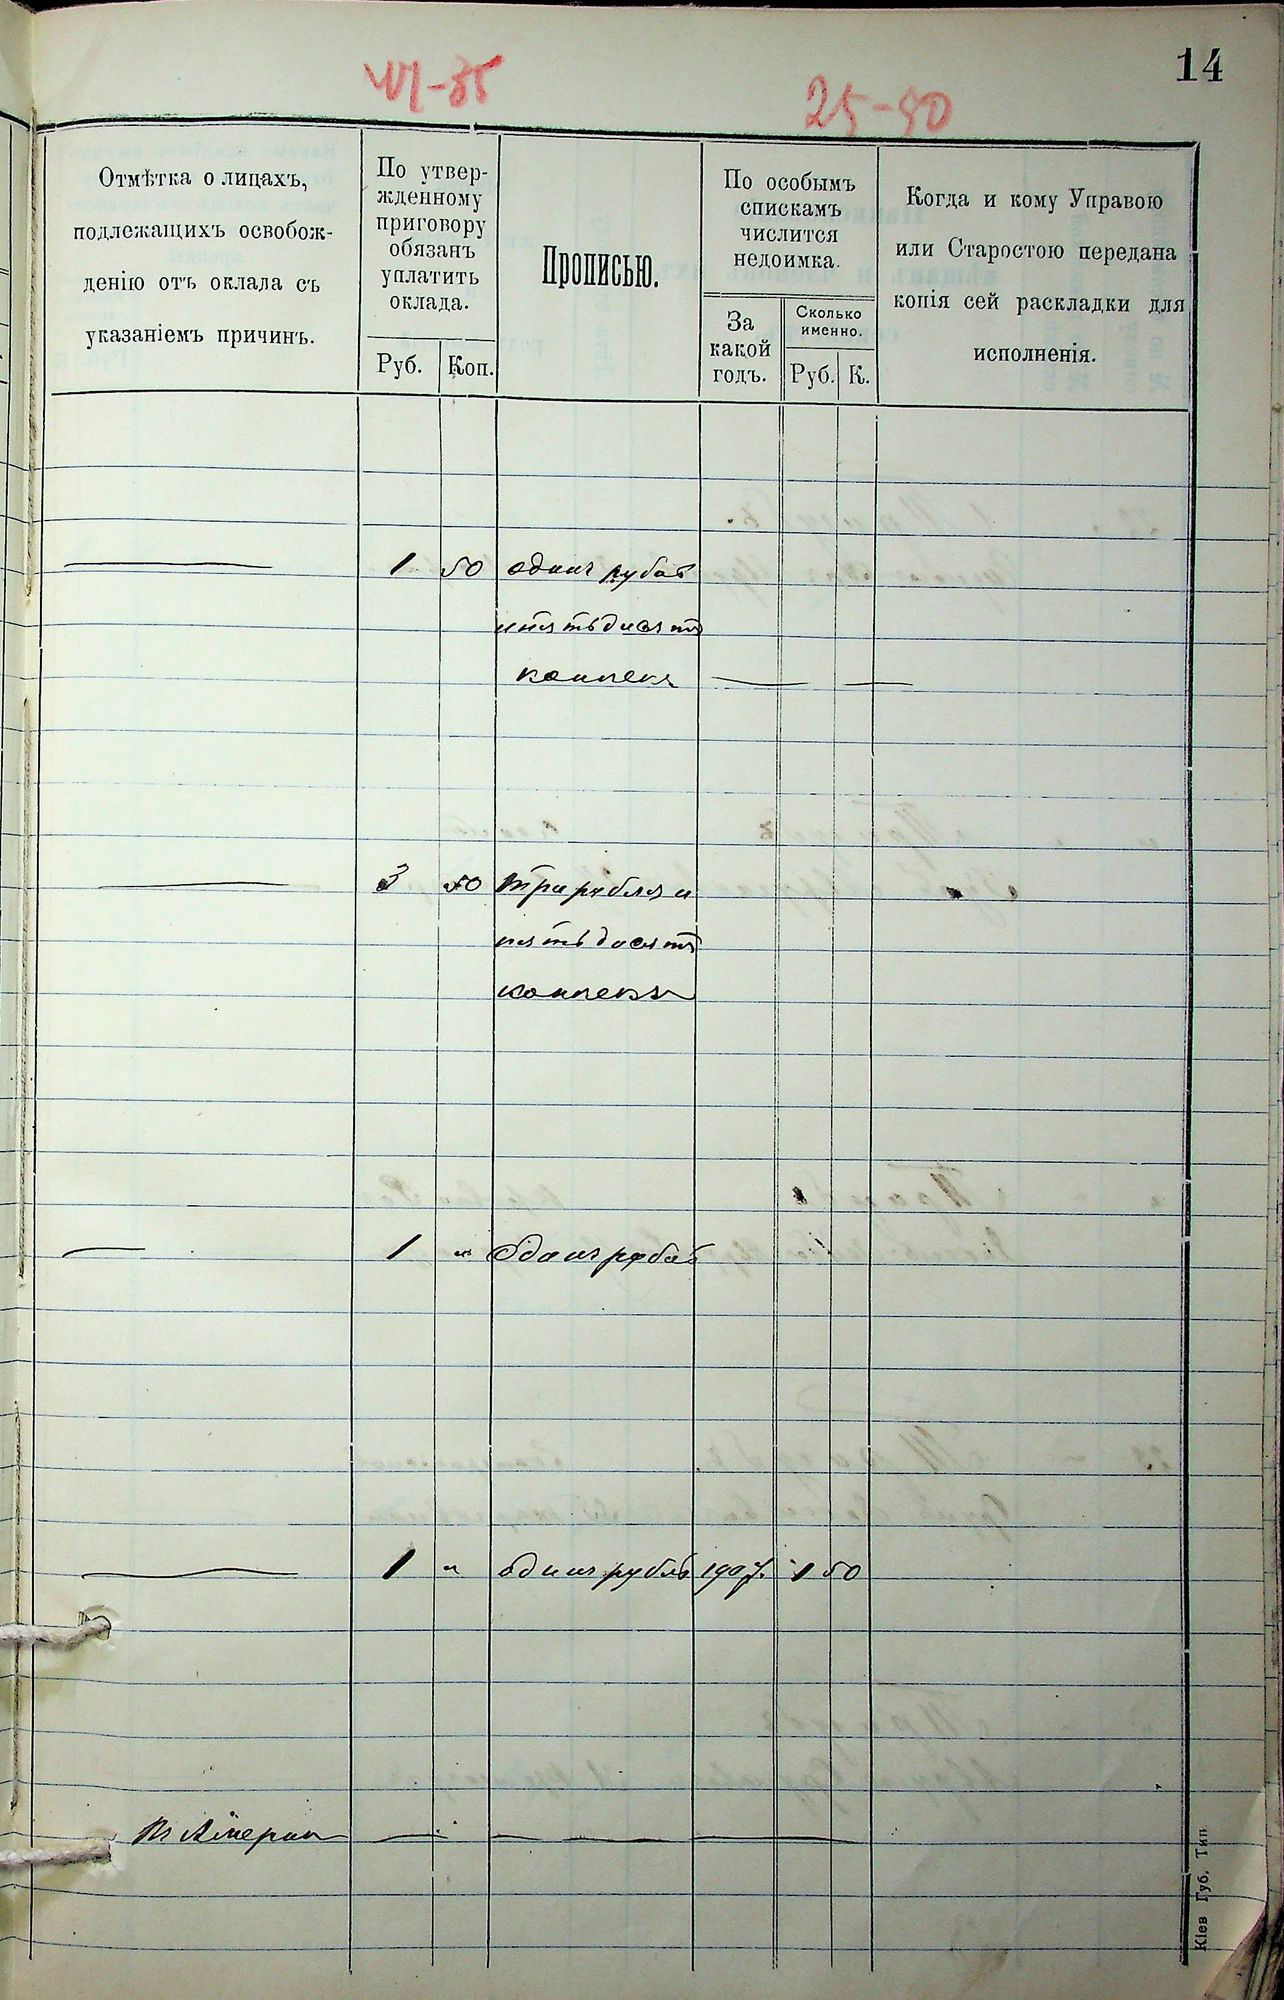 14
41-35
25-50
Отмѣтка о лицахъ,
подлежащихъ освобож-
денію отъ оклада съ
указаніемъ причинъ.
По утвер-
жденному
приговору
обязанъ
уплатить
оклада.
Руб.
Коп.
Прописью.
По особымъ
спискамъ
числится
недоимка.
За
какой
годъ.
Сколько
именно.
Руб.
К.
Когда и кому Управою
или Старостою передана
копія сей раскладки для
исполненія.
1 50 одинъ рубль
и пятьдесятъ
копѣекъ
3 50 три рубля и
пятьдесятъ
копѣекъ
1 " Одинъ рубль
1 " одинъ рубль 1907. 1 50
въ Америки
Кіев Губ. Тип